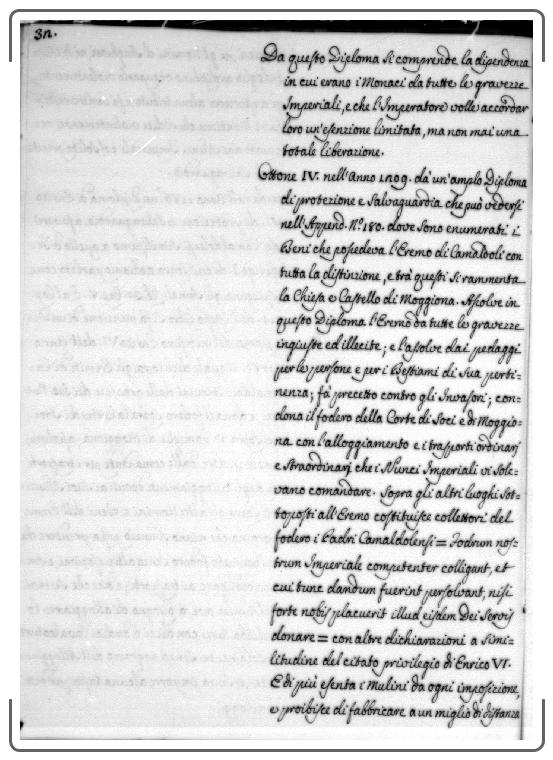 32.
Da questo Diploma si comprende la dipendenza
in cui erano i Monaci da tutte le gravezze
Imperiali, e che l'Imperatore volle accordar
loro un'esenzione limitata, ma non mai una
totale liberazione.
Ottone IV. nell'Anno 1209. dà un'amplo Diploma
di protezione e Salvaguardia che può vedersi
nell'Append. N.º 180. dove sono enumerati i
Beni che possedeva l'Eremo di Camaldoli con
tutta la distinzione, e trà questi si rammenta
la Chiesa e Castello di Moggiona. Assolve in
questo Diploma l'Eremo da tutte le gravezze
ingiuste ed illecite; e l'assolve dai pedaggi
per le persone e per i Bestiami di sua perti-
nenza; fà precetto contro gli Invasori; con-
dona il fodero della Corte di Soci e di Moggio-
na con l'alloggiamento e i trasporti ordinarj
e Straordinarj che i Nunci Imperiali vi sole-
vano comandare. Sopra gli altri luoghi sot-
toposti all'Eremo costituisce collettori del
fodero i Padri Camaldolensi = Fodrum nos-
trum Imperiale competenter colligant, et
cui tunc dandum fuerint persolvant, nisi
forte nobis placuerit illud eisdem Dei Servis
donare = con altre dichiarazioni a simi-
litudine del citato privilegio di Enrico VI.
E di più esenta i Mulini da ogni imposizione,
e proibisce di fabbricare a un miglio di distanza